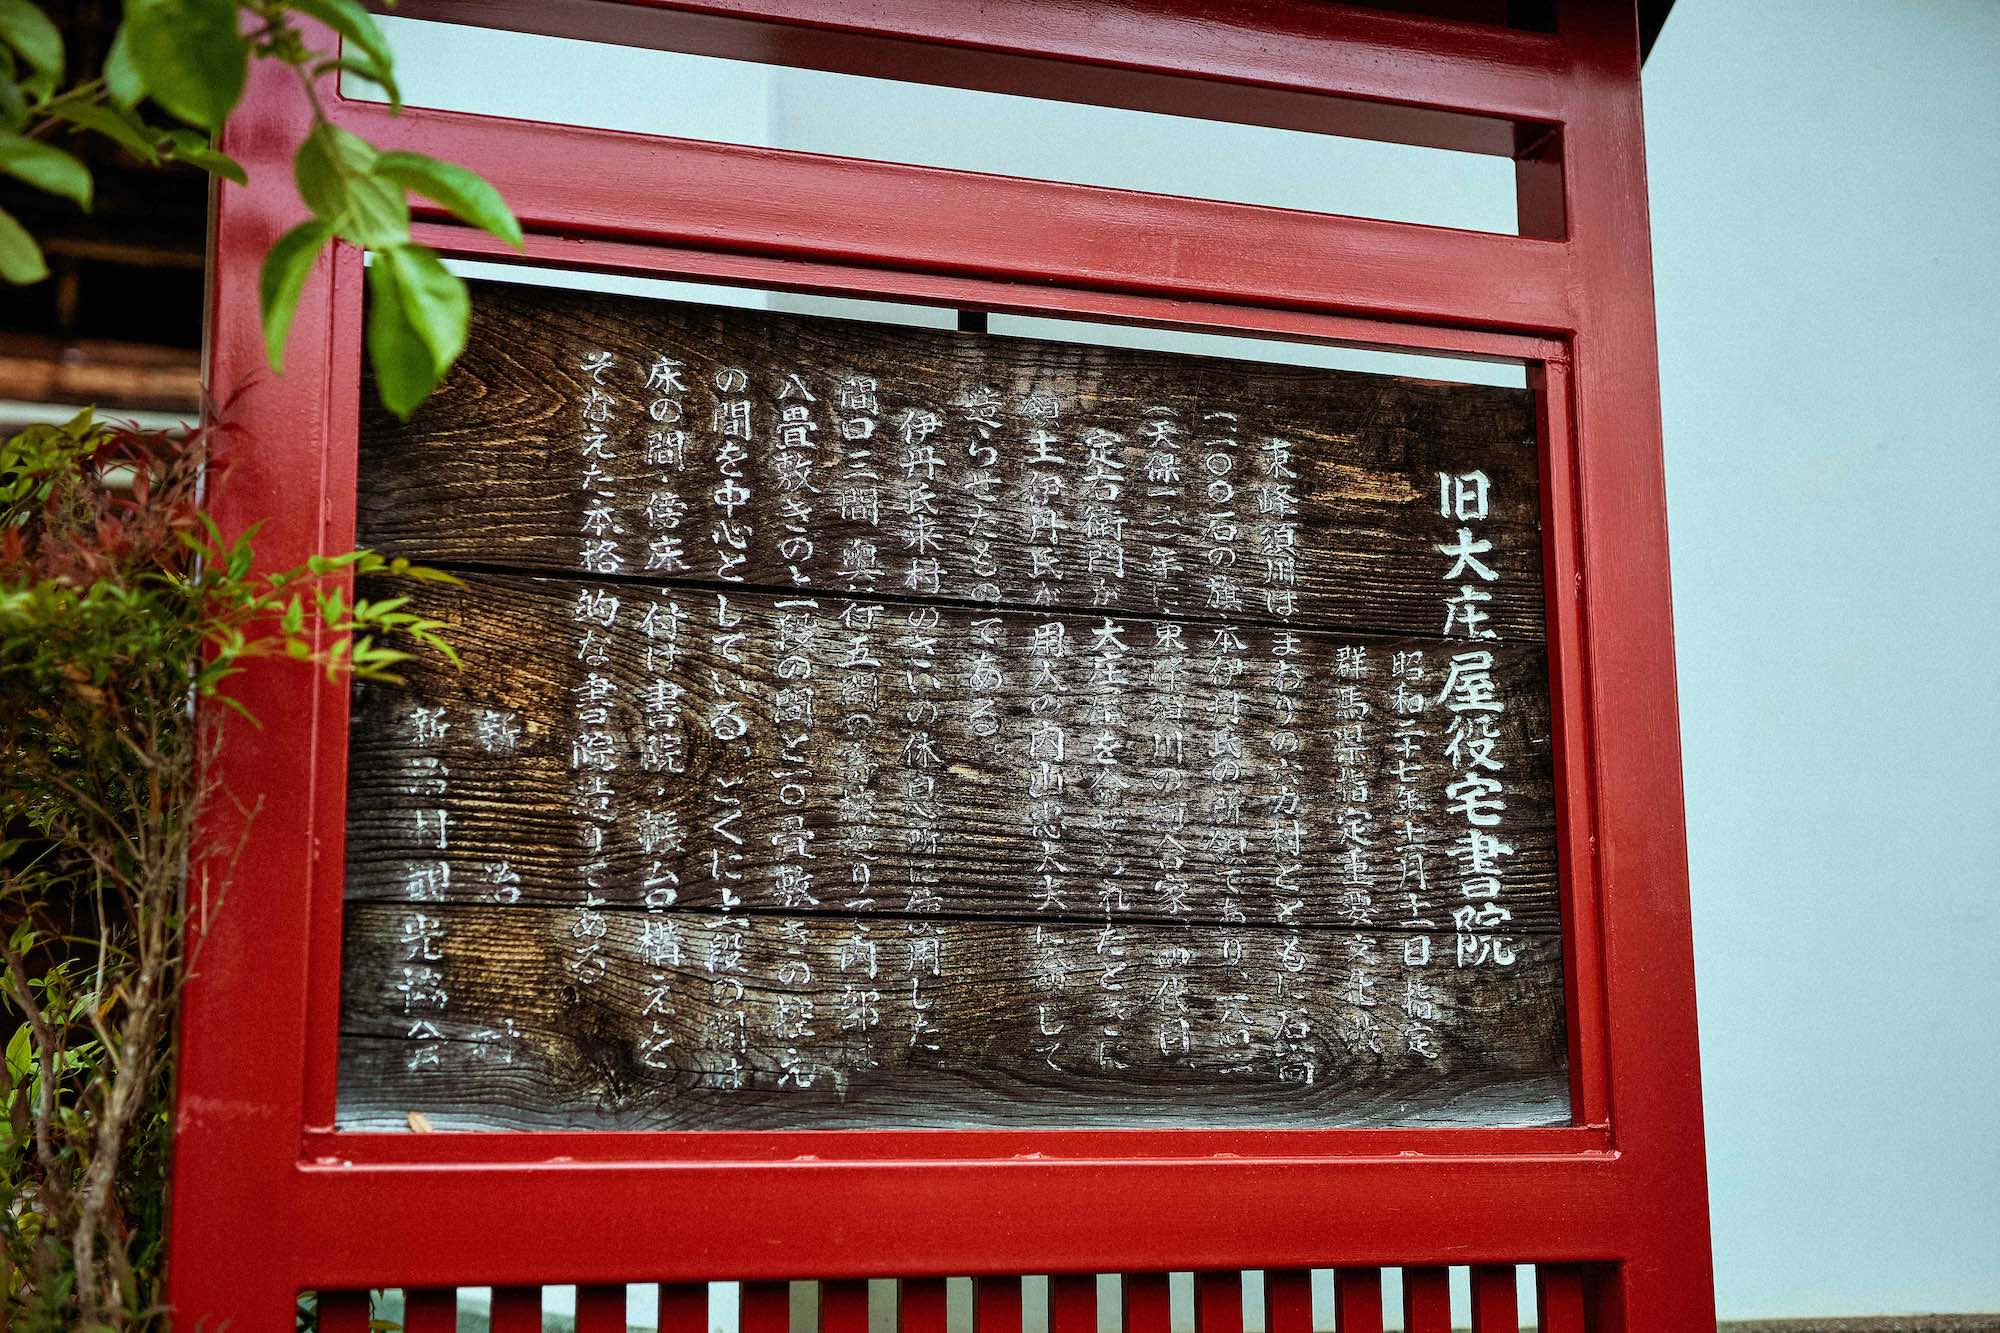 旧大庄屋役宅書院
昭和二十七年十一月十一日 指定
群馬県指定重要文化財
東峰須川は、まわりの六カ村とともに石高
一二〇〇石の旗本伊丹氏の所領であり、一八四二
(天保一三)年に、東峰須川の河合家、四代目
定右衛門が大庄屋を命ぜられたときに
領主伊丹氏が用人の内山忠大夫に命じて
造らせたものである。
伊丹氏来村のさいの休息所に使用した
間口三間、奥行五間の寄棟造りで内部は
八畳敷きの上段の間と一〇畳敷きの控え
の間を中心としている。とくに上段の間は
床の間・傍床・付け書院・輦台構えを
そなえた本格的な書院造りである
新 治 村
新治村観光協会